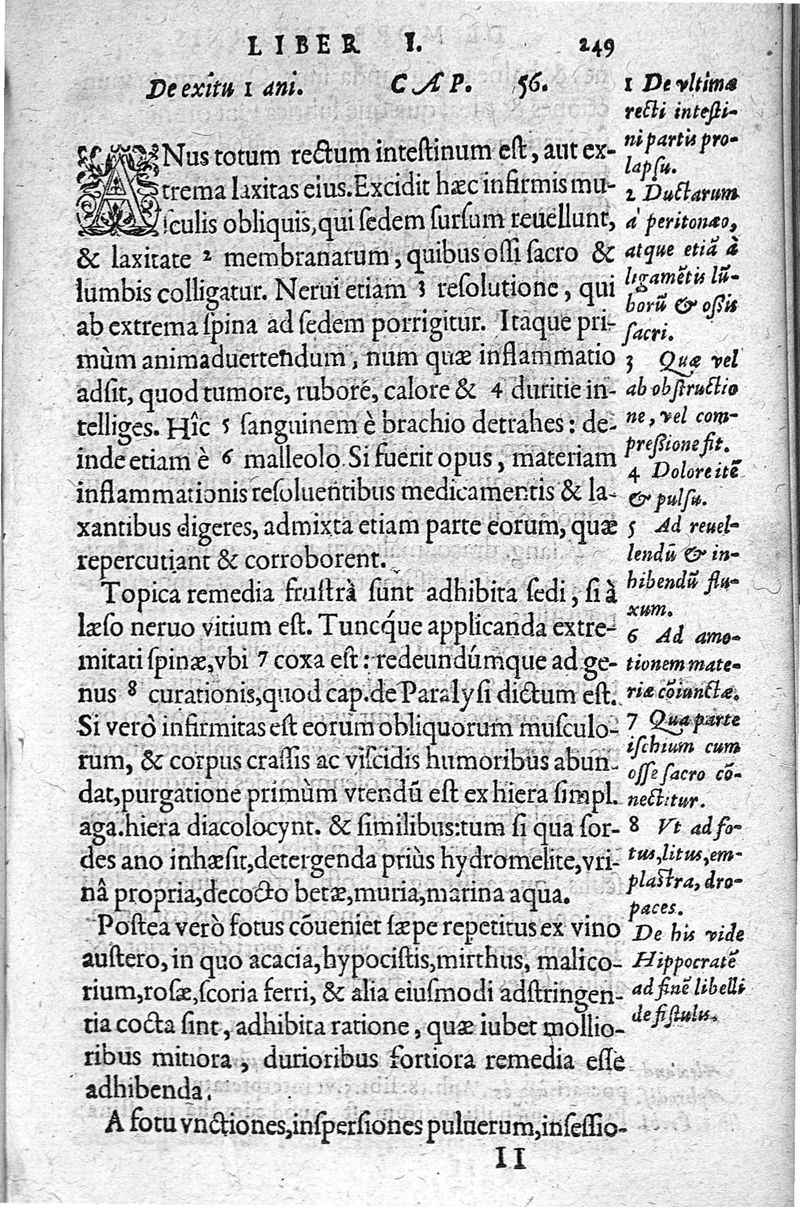 LIBER I. 249
De exitu 1 ani. CAP. 56.
ANus totum rectum intestinum est, aut ex-
trema laxitas eius. Excidit hæc infirmis mu-
sculis obliquis, qui sedem sursum reuellunt,
& laxitate 2 membranarum, quibus ossi sacro &
lumbis colligatur. Nerui etiam 3 resolutione, qui
ab extrema spina ad sedem porrigitur. Itaque pri-
mùm animaduertendum, num quæ inflammatio
adsit, quod tumore, rubore, calore & 4 duritie in-
telliges. Hîc 5 sanguinem è brachio detrahes: de-
inde etiam è 6 malleolo. Si fuerit opus, materiam
inflammationis resoluentibus medicamentis & la-
xantibus digeres, admixta etiam parte eorum, quæ
repercutiant & corroborent.
Topica remedia frustrà sunt adhibita sedi, si à
læso neruo vitium est. Tuncque applicanda extre-
mitati spinæ, vbi 7 coxa est: redeundúmque ad ge-
nus 8 curationis, quod cap. de Paralysi dictum est.
Si verò infirmitas est eorum obliquorum musculo-
rum, & corpus crassis ac viscidis humoribus abun-
dat, purgatione primùm vtendū est ex hiera simpl.
aga. hiera diacolocynt. & similibus: tum si qua sor-
des ano inhæsit, detergenda priùs hydromelite, vri-
nâ propria, decocto betæ, muria, marina aqua.
Postea verò fotus cōueniet sæpe repetitus ex vino
austero, in quo acacia, hypocistis, mirthus, malico-
rium, rosæ, scoria ferri, & alia eiusmodi adstringen-
tia cocta sint, adhibita ratione, quæ iubet mollio-
ribus mitiora, durioribus fortiora remedia esse
adhibenda.
A fotu vnctiones, inspersiones puluerum, insessio-
II
1 De vltimæ
recti intesti-
ni partis pro-
lapsu.
2 Ductarum
à peritonæo,
atque etiā à
ligamētis lū-
borū & oßis
sacri.
3 Quæ vel
ab obstructio
ne, vel com-
preßione fit.
4 Dolore itē
& pulsu.
5 Ad reuel-
lendū & in-
hibendū flu-
xum.
6 Ad amo-
tionem mate-
riæ cōiunctæ.
7 Qua parte
ischium cum
osse sacro cō-
nectitur.
8 Vt ad fo-
tus, litus, em-
plastra, dro-
paces.
De his vide
Hippocratē
ad finē libelli
de fistulis.